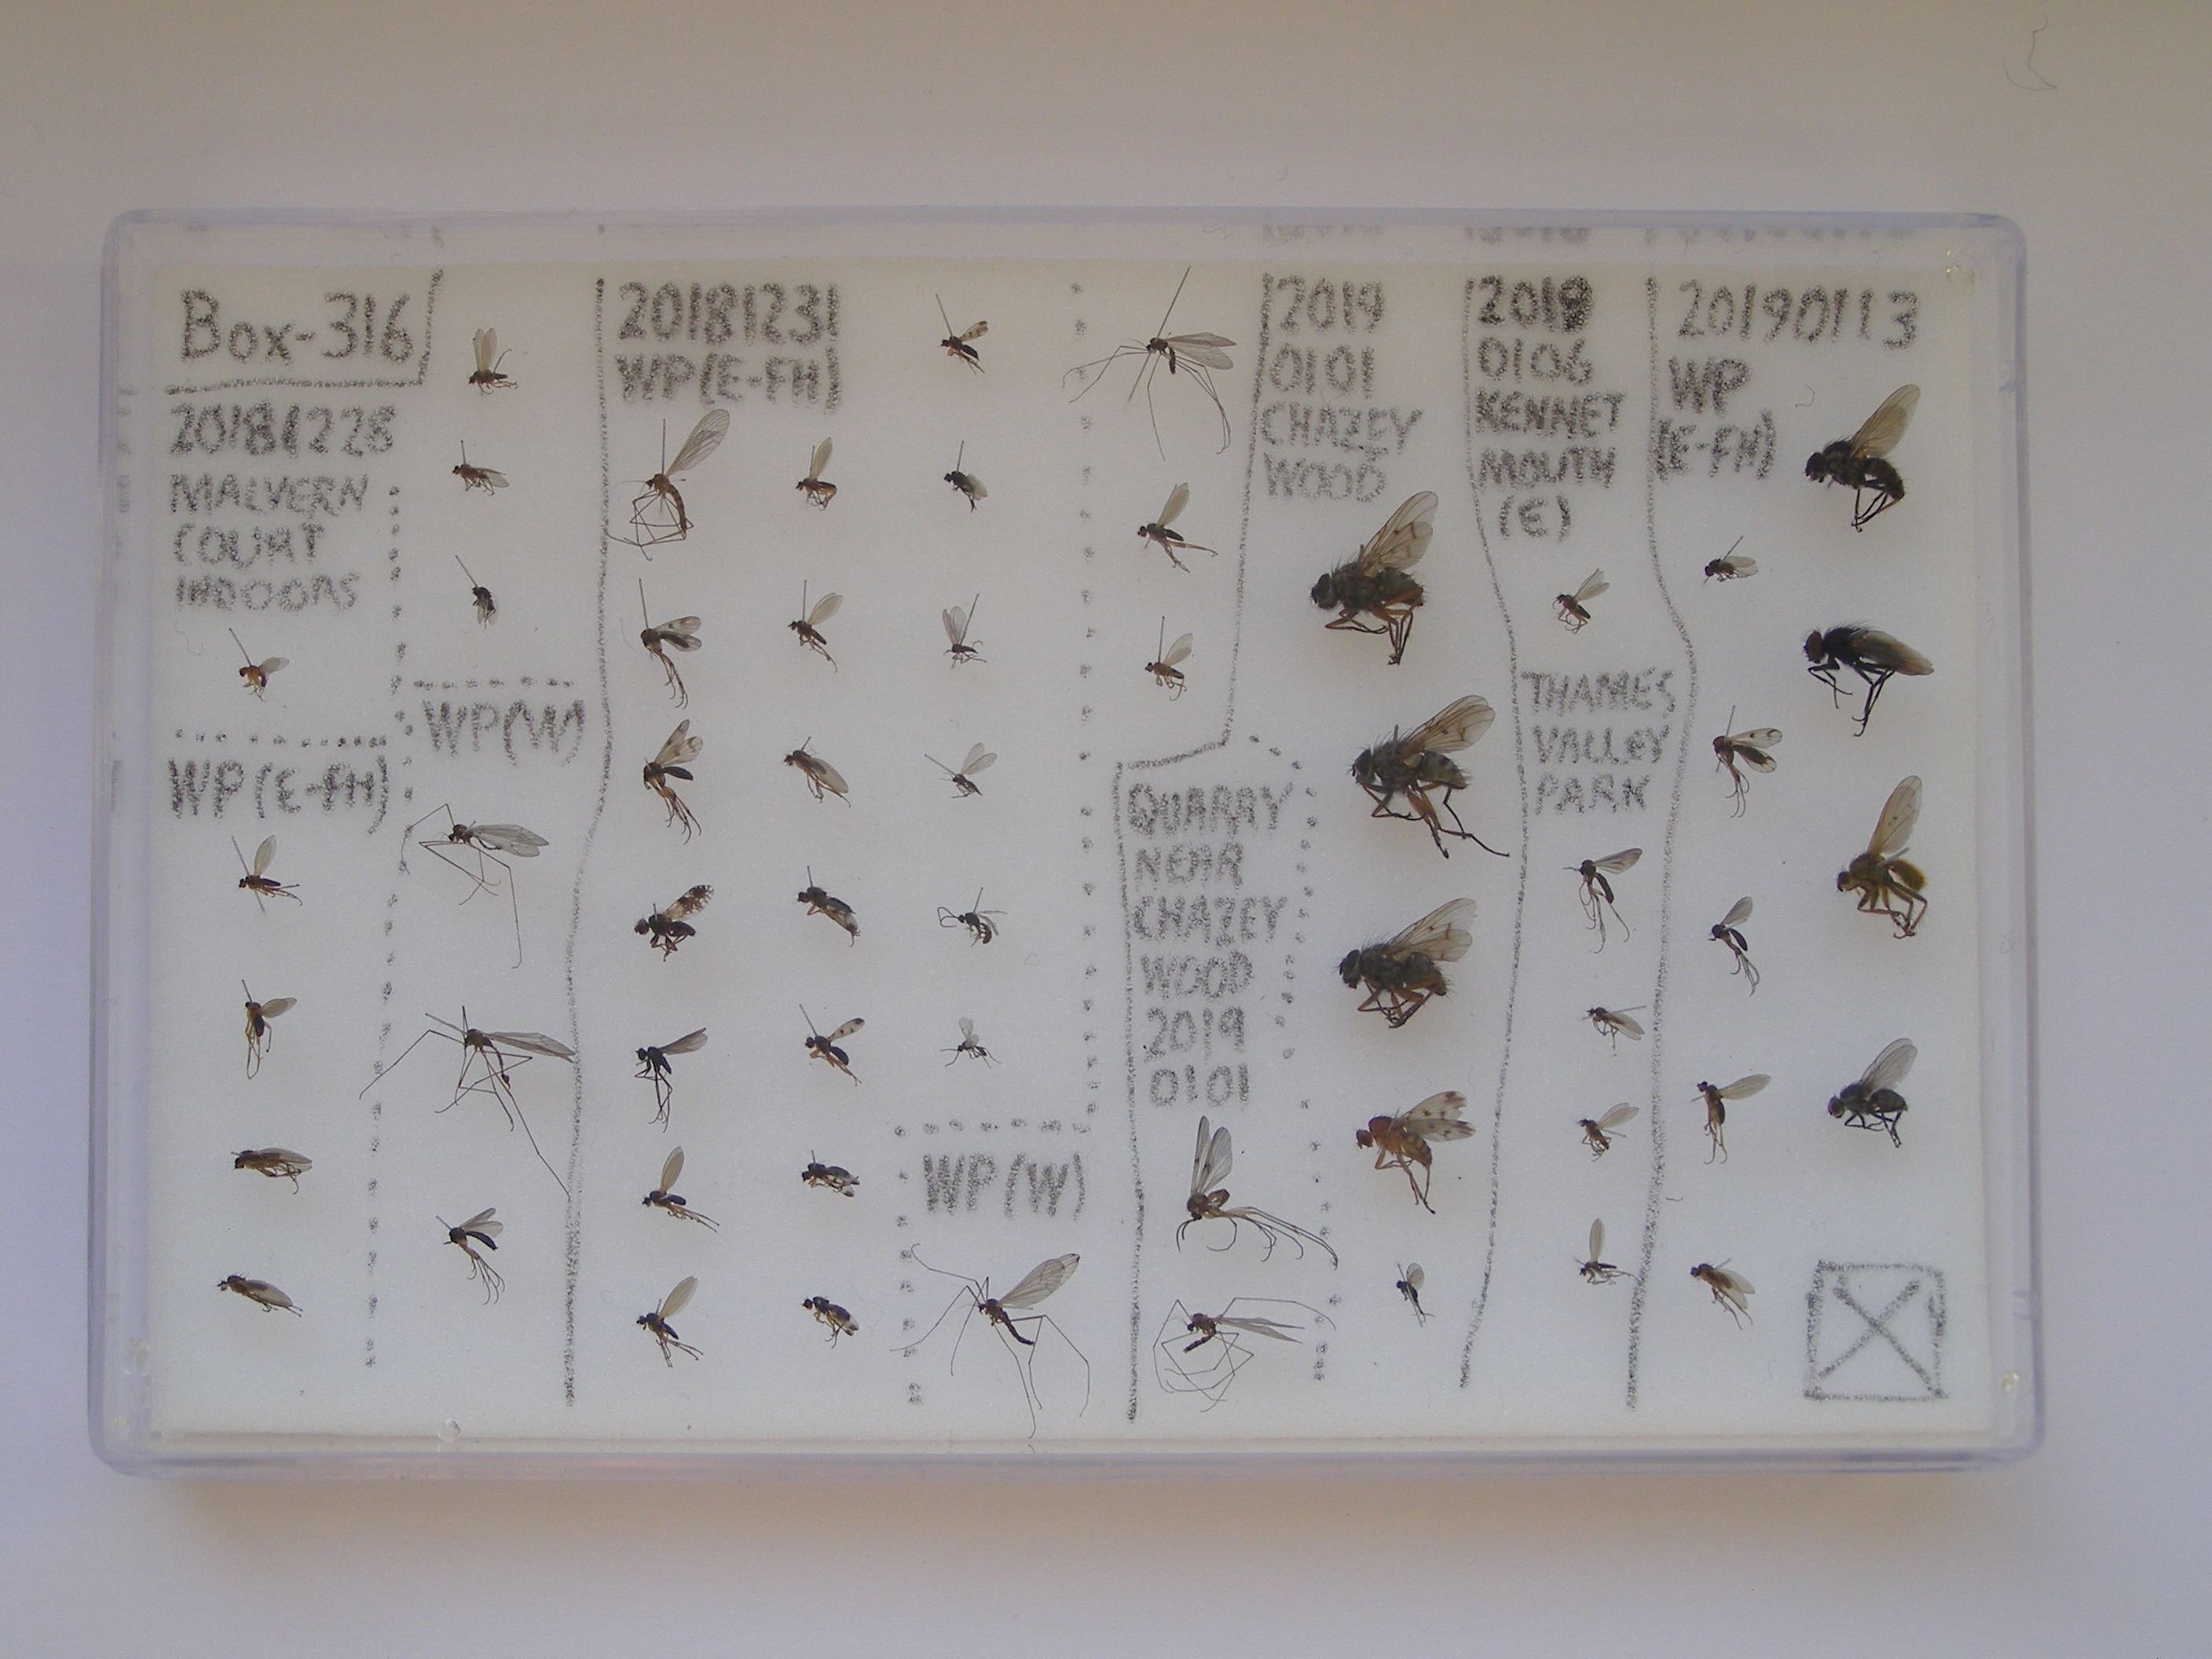 Box-316
20181228
MALVERN
COURT
INDOORS
WP(E-FH)
WP(W)
20181231
WP(E-FH)
WP(W)
2019
0101
CHAZEY
WOOD
QUARRY
NEAR
CHAZEY
WOOD
2019
0101
2019
0106
KENNET
MOUTH
(E)
THAMES
VALLEY
PARK
20190113
WP
(E-FH)